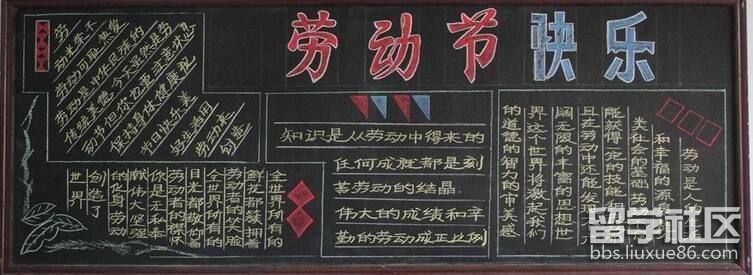 劳动节快乐
劳
动光荣不
劳动可耻热爱
劳动是中华民族的
传统美德今天虽然是劳
动节但你也要注意休息
保持身体健康祝
节日快乐美
好生活用
劳动来
创造
全世界所有的
鲜花都簇拥着
劳动者的笑脸
全世界所有的
目光都敬仰着
劳动者的襟怀
你是无私奉
献伟大坚强
的化身劳动
创造了
世界
知识是从劳动中得来的
任何成就都是刻
苦劳动的结晶
伟大的成绩和辛
勤的劳动成正比例
劳动是人
和幸福的源
类社会的基础劳
能获得一定的技能和
且在劳动中还能发现一个
阔无限的丰富的思想世
界这个世界将激起我们
的道德的智力的审美感
留学社区
bbs.liuxue86.com